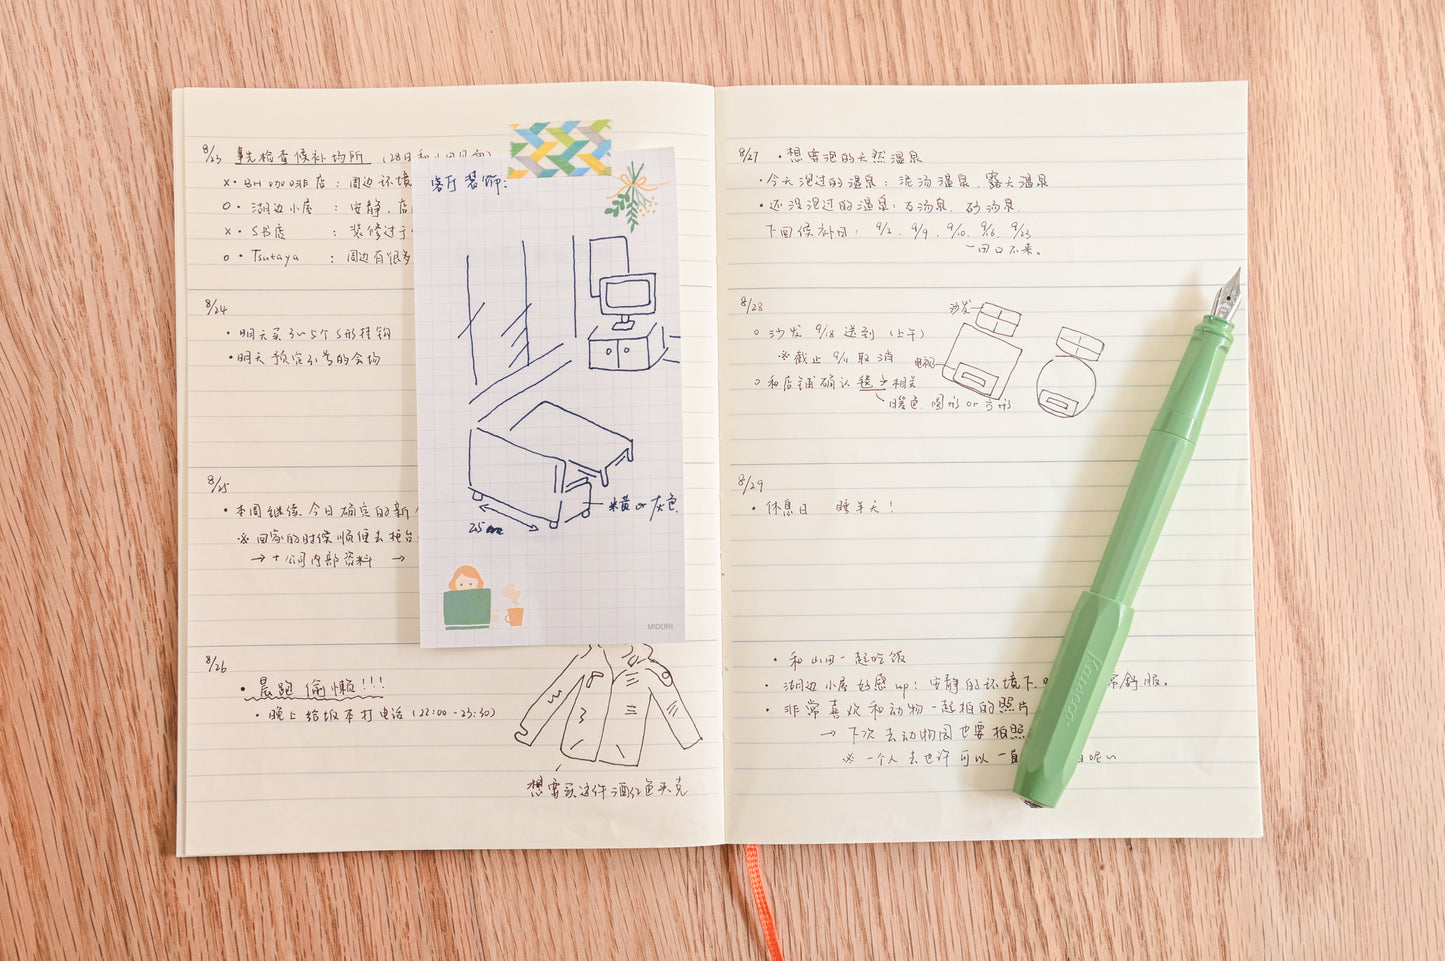 8/23 事先检查候补场所 (28日和山田见面)
x · BH咖啡店 : 周边环境
o · 湖边小屋 : 安静，店
x · SB店 : 装修过于
o · Tsutaya : 周边有很多
8/24
· 明天买3~5个S形挂钩
· 明天预定31号的会场
8/25
· 本周继续、今日确定的新
※ 回家的时候顺便去柜台
→ + 公司内部资料 →
8/26
· 晨跑偷懒!!!
· 晚上给坂本打电话 (22:00-23:30)
想要买这件酒红色夹克
客厅装饰:
米黄 or 灰色
MIDORI
8/27 · 想要泡的天然温泉
· 今天泡过的温泉: 泥汤温泉、露天温泉
· 还没泡过的温泉: 石汤泉、砂汤泉、
下回候补日: 9/2、9/9、9/10、9/16、9/23
8/28
o 沙发 9/18 送到 (上午)
※截止 9/11 取消
o 和店铺确认 毯子相关
暖色、圆形 or 方形
沙发
电视
8/29
· 休息日 睡半天!
· 和山田一起吃饭
· 湖边小屋好感up: 安静的环境下 常舒服。
· 非常喜欢和动物一起拍的照片
→ 下次去动物园也要拍照
※ 一个人去也许可以一直 呢~
Kaweco